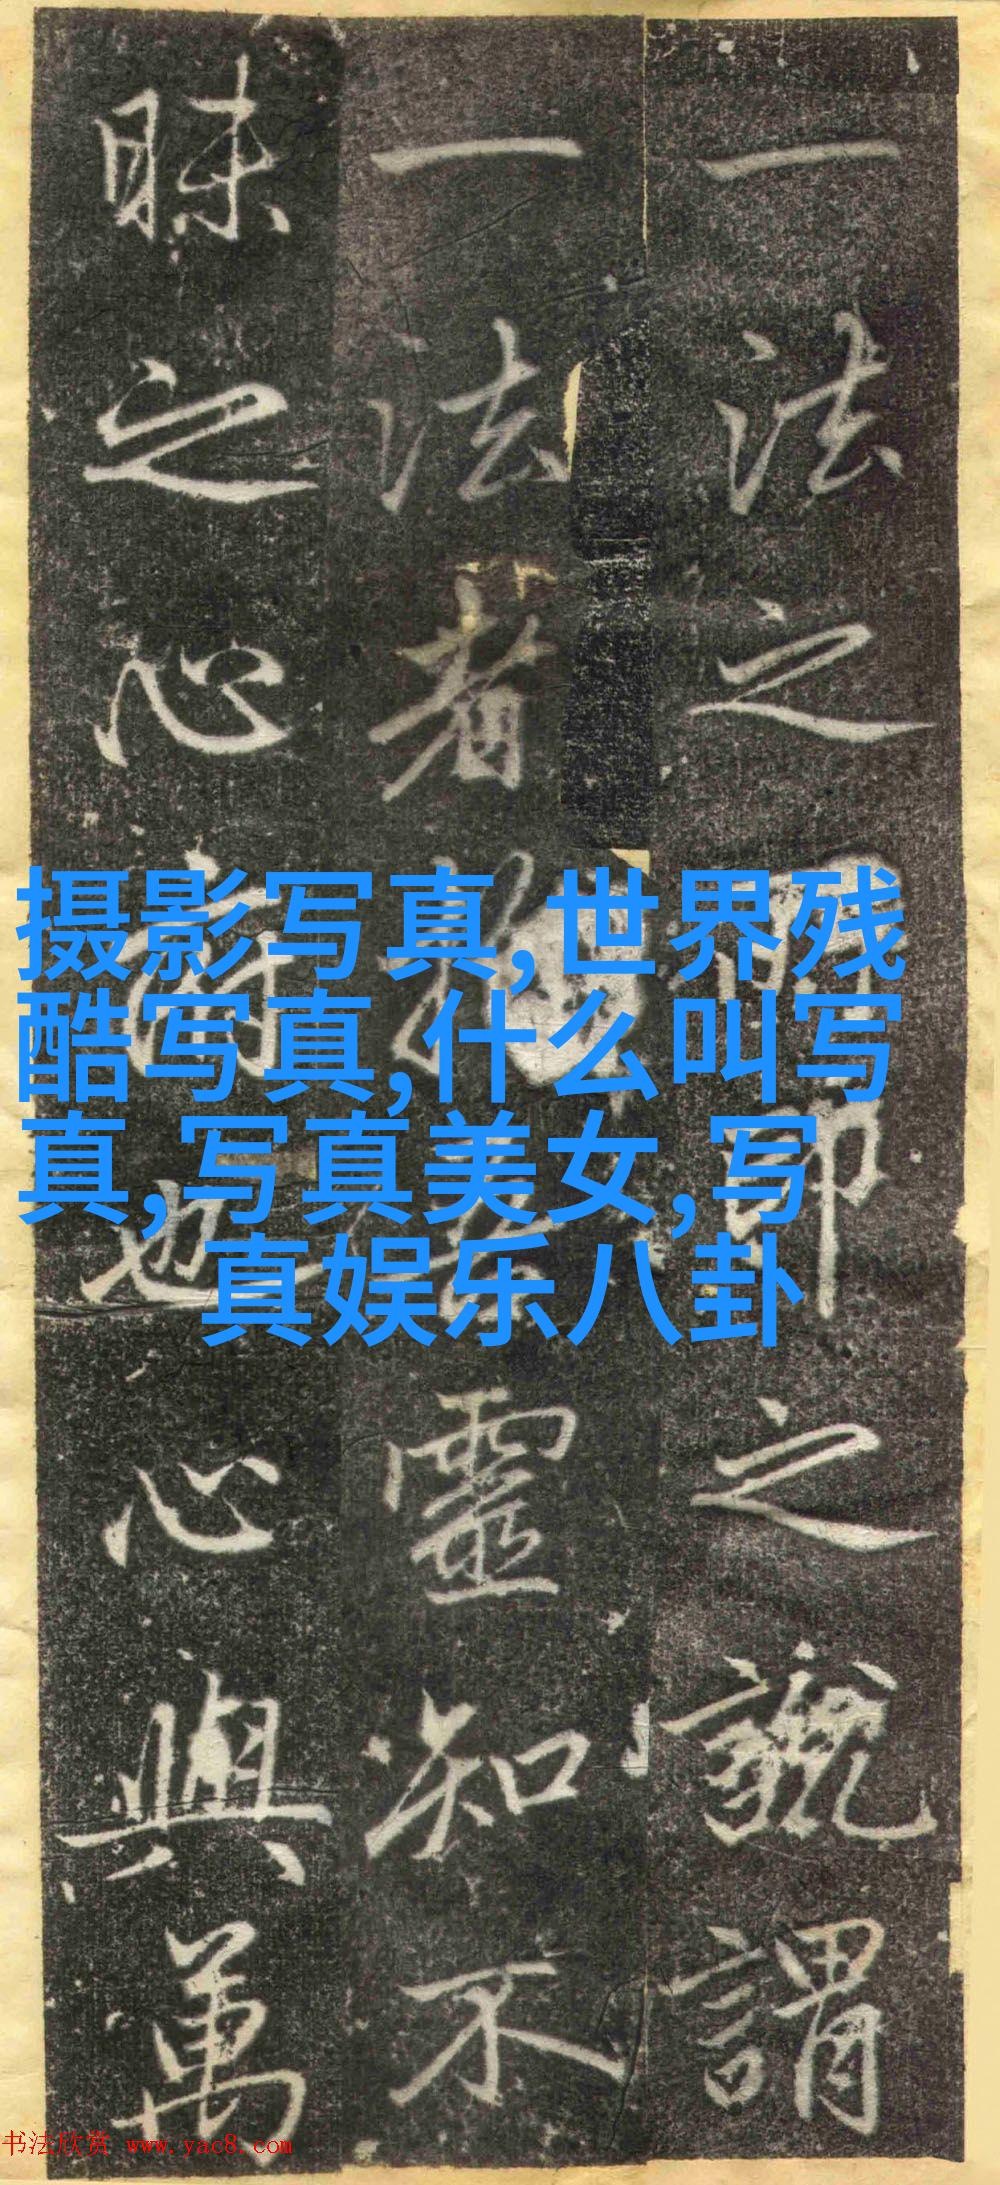 一法之之謂
一法者靈知不
昧之心也心與萬
摄影写真,世界残
酷写真,什么叫写
真,写真美女,写
真娱乐八卦
书法欣赏 www.yac8.com